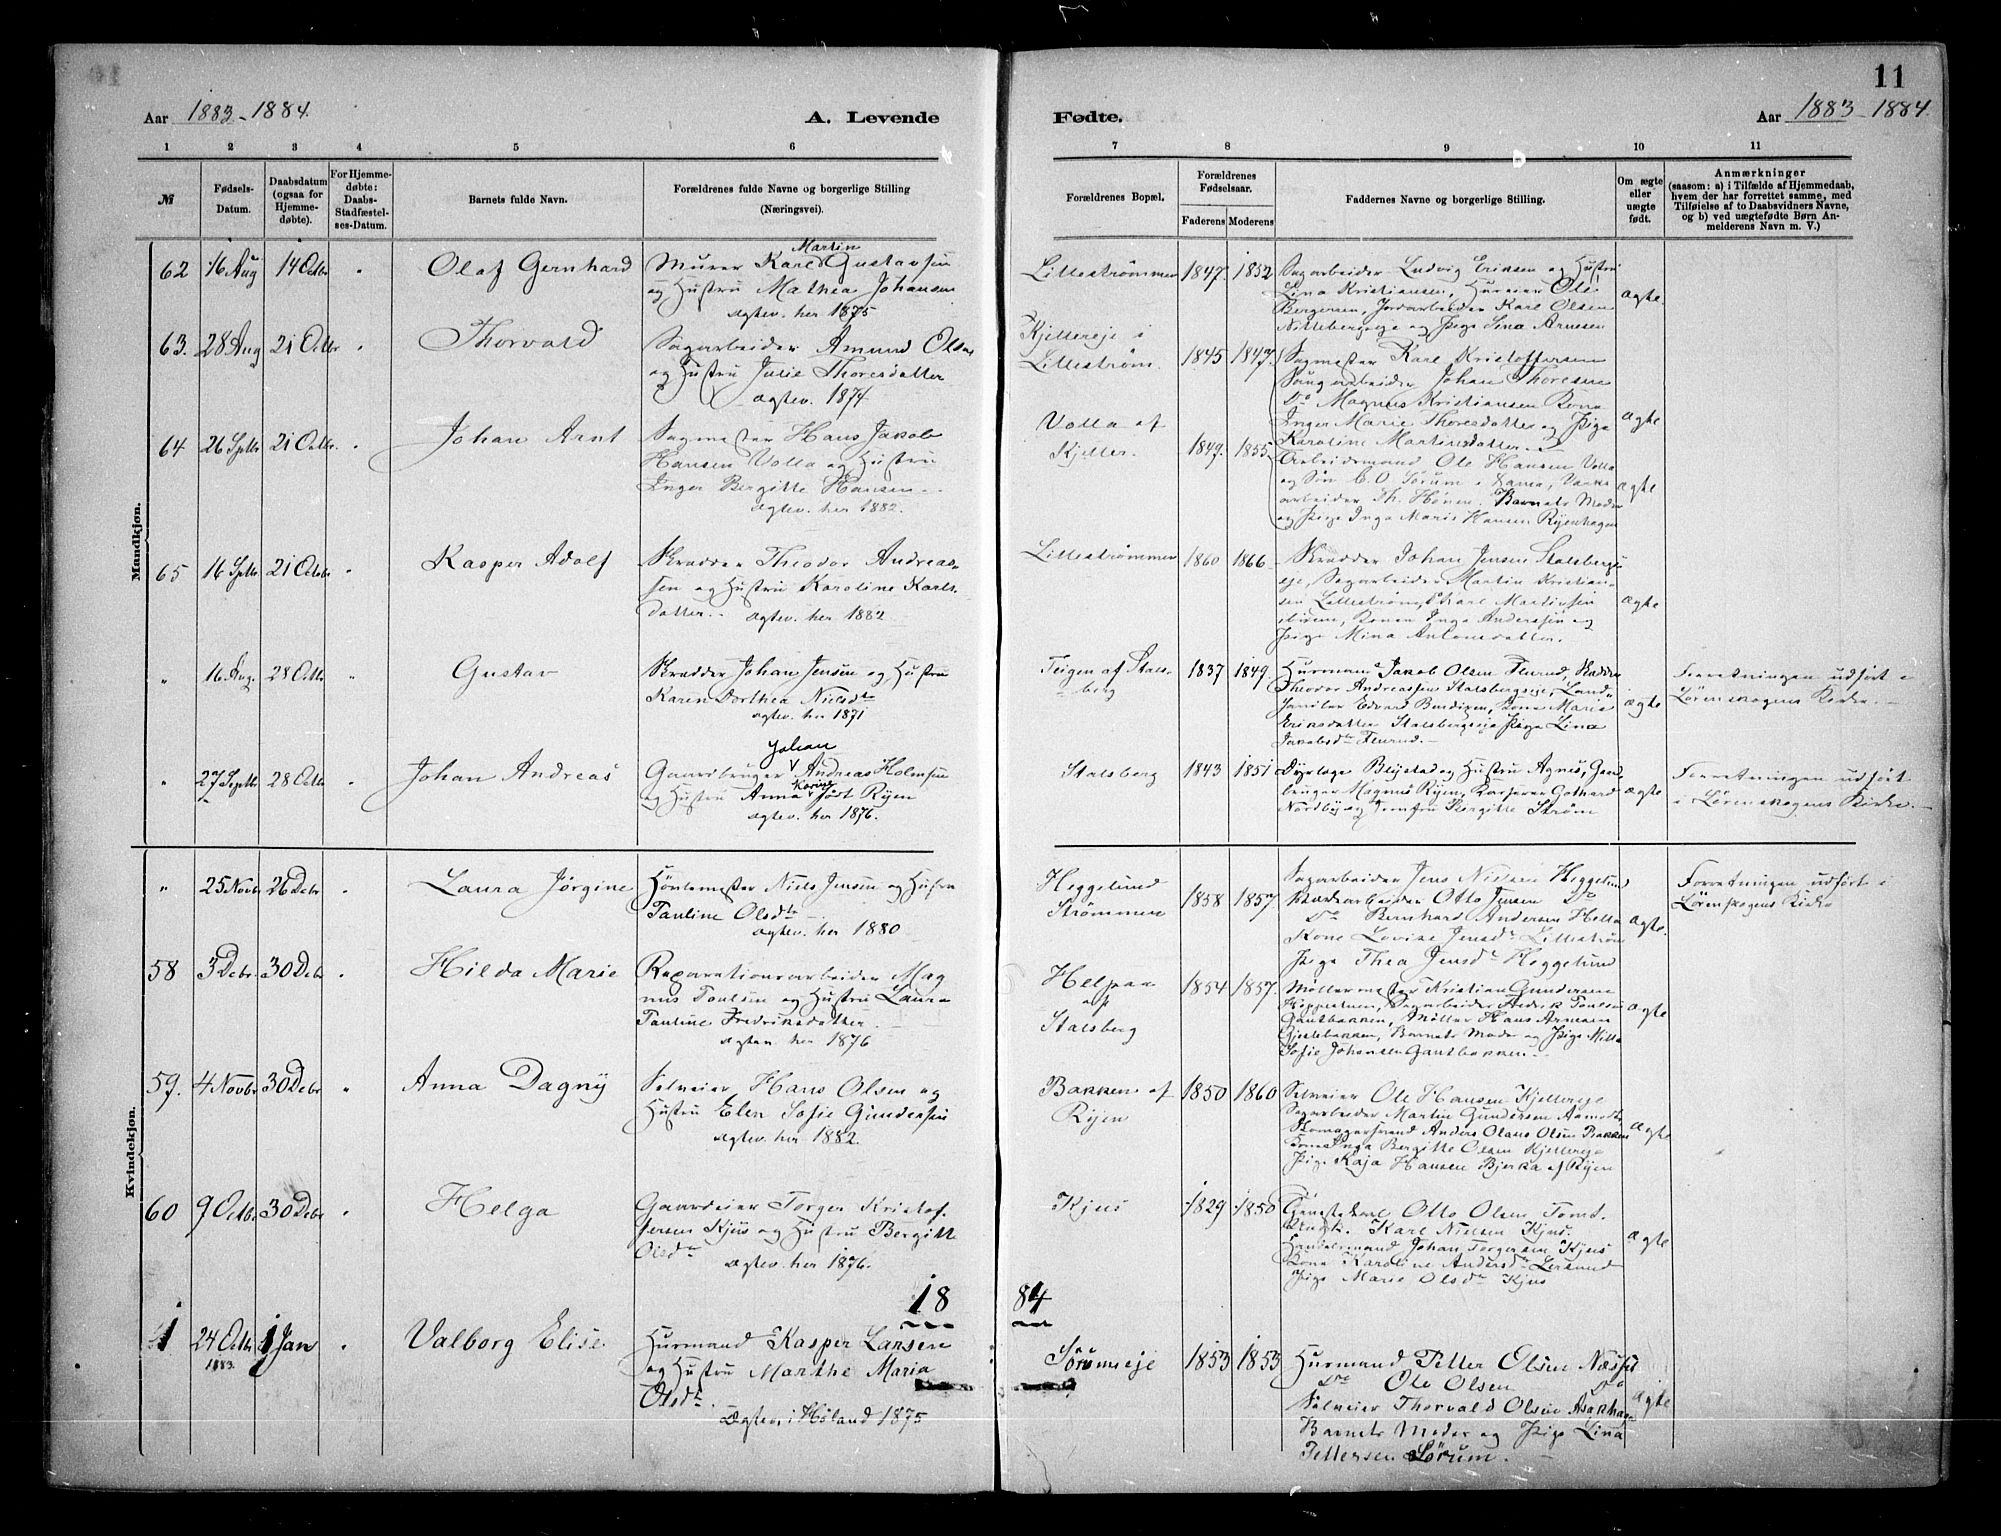 11
Aar 1883-1884.
A. Levende
Fødte.
Aar 1883-1884
1 2 3 4 5 6 7 8 9 10 11
№
Fødsels-Datum.
Daabsdatum (ogsaa for Hjemmedøbte).
For Hjemmedøbte: Daabs-Stadfæstelses-Datum.
Barnets fulde Navn.
Forældrenes fulde Navne og borgerlige Stilling (Næringsvei).
Forældrenes Bopæl.
Forældrenes Fødselsaar.
Faderens Moderens
Faddernes Navne og borgerlige Stilling.
Om ægte eller uægte født.
Anmærkninger
(saasom: a) i Tilfælde af Hjemmedaab, hvem der har forrettet samme, med Tilføielse af to Daabsvidners Navne, og b) ved uægtefødte Børn Anmelderens Navn m. V.)
Mandkjøn.
62 16 Aug 14 Octbr " Olaf Gernhard
Murer Karl Martin Gustavsen
og Hustru Mathea Johansen
ægtev. her 1875
Lillestrømmen 1847. 1852
Sagarbeider Ludvig Eriksen og Hustru
Lina Kristiansen, Huseier Ole
Bergersen, Jordarbeider Karl Olsen
Nittebergseje og Pige Lina Arnesen
ægte.
63. 28 Aug 21 Octbr " Thorvald
Sagarbeider Amund Olsen
og Hustru Julie Thoresdatter
ægtev. 1874
Kjellereje i
Lillestrøm.
1845 1847.
Sagmester Karl Kristoffersen
Saugarbeider Johan Thoresen
Do Magnus Kristiansen Kone
Inger Marie Thoresdatter og Pige
Karoline Martinsdatter.
ægte
64 26 Septbr 21 Octbr. " Johan Arnt
Sagmester Hans Jakob
Hansen Volla og Hustru
Inger Bergitte Hansen.
ægtev. her 1882.
Volla af
Kjeller.
1849. 1855
Arbeidsmand Ole Hansen Volla
og Søn C. O. Sørum i Lama,
arbeider Th. Barnets Moder
og Pige Inga Marie Hansen Ryenhagen
ægte
65 16 Septbr 21 Octobr " Kasper Adolf
Skrædder Theodor Andreas-
sen og Hustru Karoline Karls-
datter. ægtev. her 1882
Lillestrømmen 1860 1866
Skrædder Johan Jensen Stalsbergs-
eje, Sagarbeider Martin Kristian-
sen Lillestrøm, Karl Martinsen
ibidem, Konen Inga Andersen og
Pige Mina Antonsdatter.
ægte
" 16 Aug. 28 Octbr " Gustav
Skrædder Johan Jensen og Hustru
Karen Dorthea Nielsdtr
ægtev. her 1871
Teigen af Stals-
berg
1837 1849.
Husmand Jakob Olsen Flurud, Skrædder
Theodor Andreassen Stalsbergseje, Land-
Edvard Bendixen, Kone Marie
Eriksdatter Stalsbergseje Pige Lina
Jakobsdtr Flurud.
ægte
Forretningen udført i
Lørenskogens Kirke.
" 27 Septbr 28 Octbr " Johan Andreas
Gaardbruger Johan Andreas Holmsen
og Hustru Anna Karine født Ryen
ægtev. her 1876.
Stalsberg 1843 1851
Dyrlæge Blystad og Hustru Agnes, Gaard-
bruger Magnus Ryen, Kasserer Gothard
Nordby og Jomfru Bergitte Strøm
ægte
Forretningen udført
i Lørenskogens Kirke.
Kvindekjøn.
" 25 Novbr 26 Debr " Laura Jørgine
Høvlemester Niels Jensen og Hustru
Pauline Olsdtr
ægtev. her 1880
Heggelund
Strømmen
1858 1857
Sagarbeider Jens Nielsen Heggelund
arbeider Otto Jensen Do
Do Bernhard Andersen Holla
Kone Lovise Jensdtr Lillestrøm
Pige Thea Jensdtr Heggelund
ægte.
Forretningen udført i
Lørenskogens Kirke
58 3 Debr. 30 Debr " Hilda Marie
Reparationsarbeider Mag
nus Poulsen og Hustru Laura
Pauline Fredriksdatter.
ægtev. her 1876
Helpaa
af
Stalsberg
1854 1857.
Møllermester Kristian Gundersen
Sagarbeider Fredrik Poulsen
Gaustbakken, Møller Hans Arnesen
Barnets Moder og Pige Milla
Sofie Johansen Gaustbakken
ægte
59. 4 Novbr 30 Debr " Anna Dagny
Selveier Hans Olsen og
Hustru Elen Sofie Gundersen
ægtev. her 1882.
Bakken af
Ryen
1850 1860
Selveier Ole Hansen Kjellereje
Sagarbeider Martin Gundersen Aamodt,
Skomagersvend Anders Olaus Olsen Bakken
Kone Inga Bergitte Olsen Kjellereje
Pige Kaja Hansen Bjerka af Ryen
ægte
60 9 Octbr 30 Debr " Helga
Gaardeier Torger Kristof-
fersen Kjus og Hustru Bergitte
Olsdtr
ægtev. her 1876.
Kjus 1829 1850
Otto Olsen Tomt.
Karl Nielsen Kjus.
Handelsmand Johan Torgersen Kjus
Kone Karoline Andersdtr Lersund
Pige Marie Olsdtr Kjus
ægte
1884
1 24 Octbr 1883. 1 Jan " Valborg Elise
Husmand Kasper Larsen
og Hustru Marthe Maria
Olsdtr.
Ægtev. i Høland 1875
Sørumeje 1853 1853
Husmand Petter Olsen Næsset
Do Ole Olsen Do
Selveier Thorvald Olsen Aakhagen
Barnets Moder og Pige Lina
Pettersen Sørum.
ægte